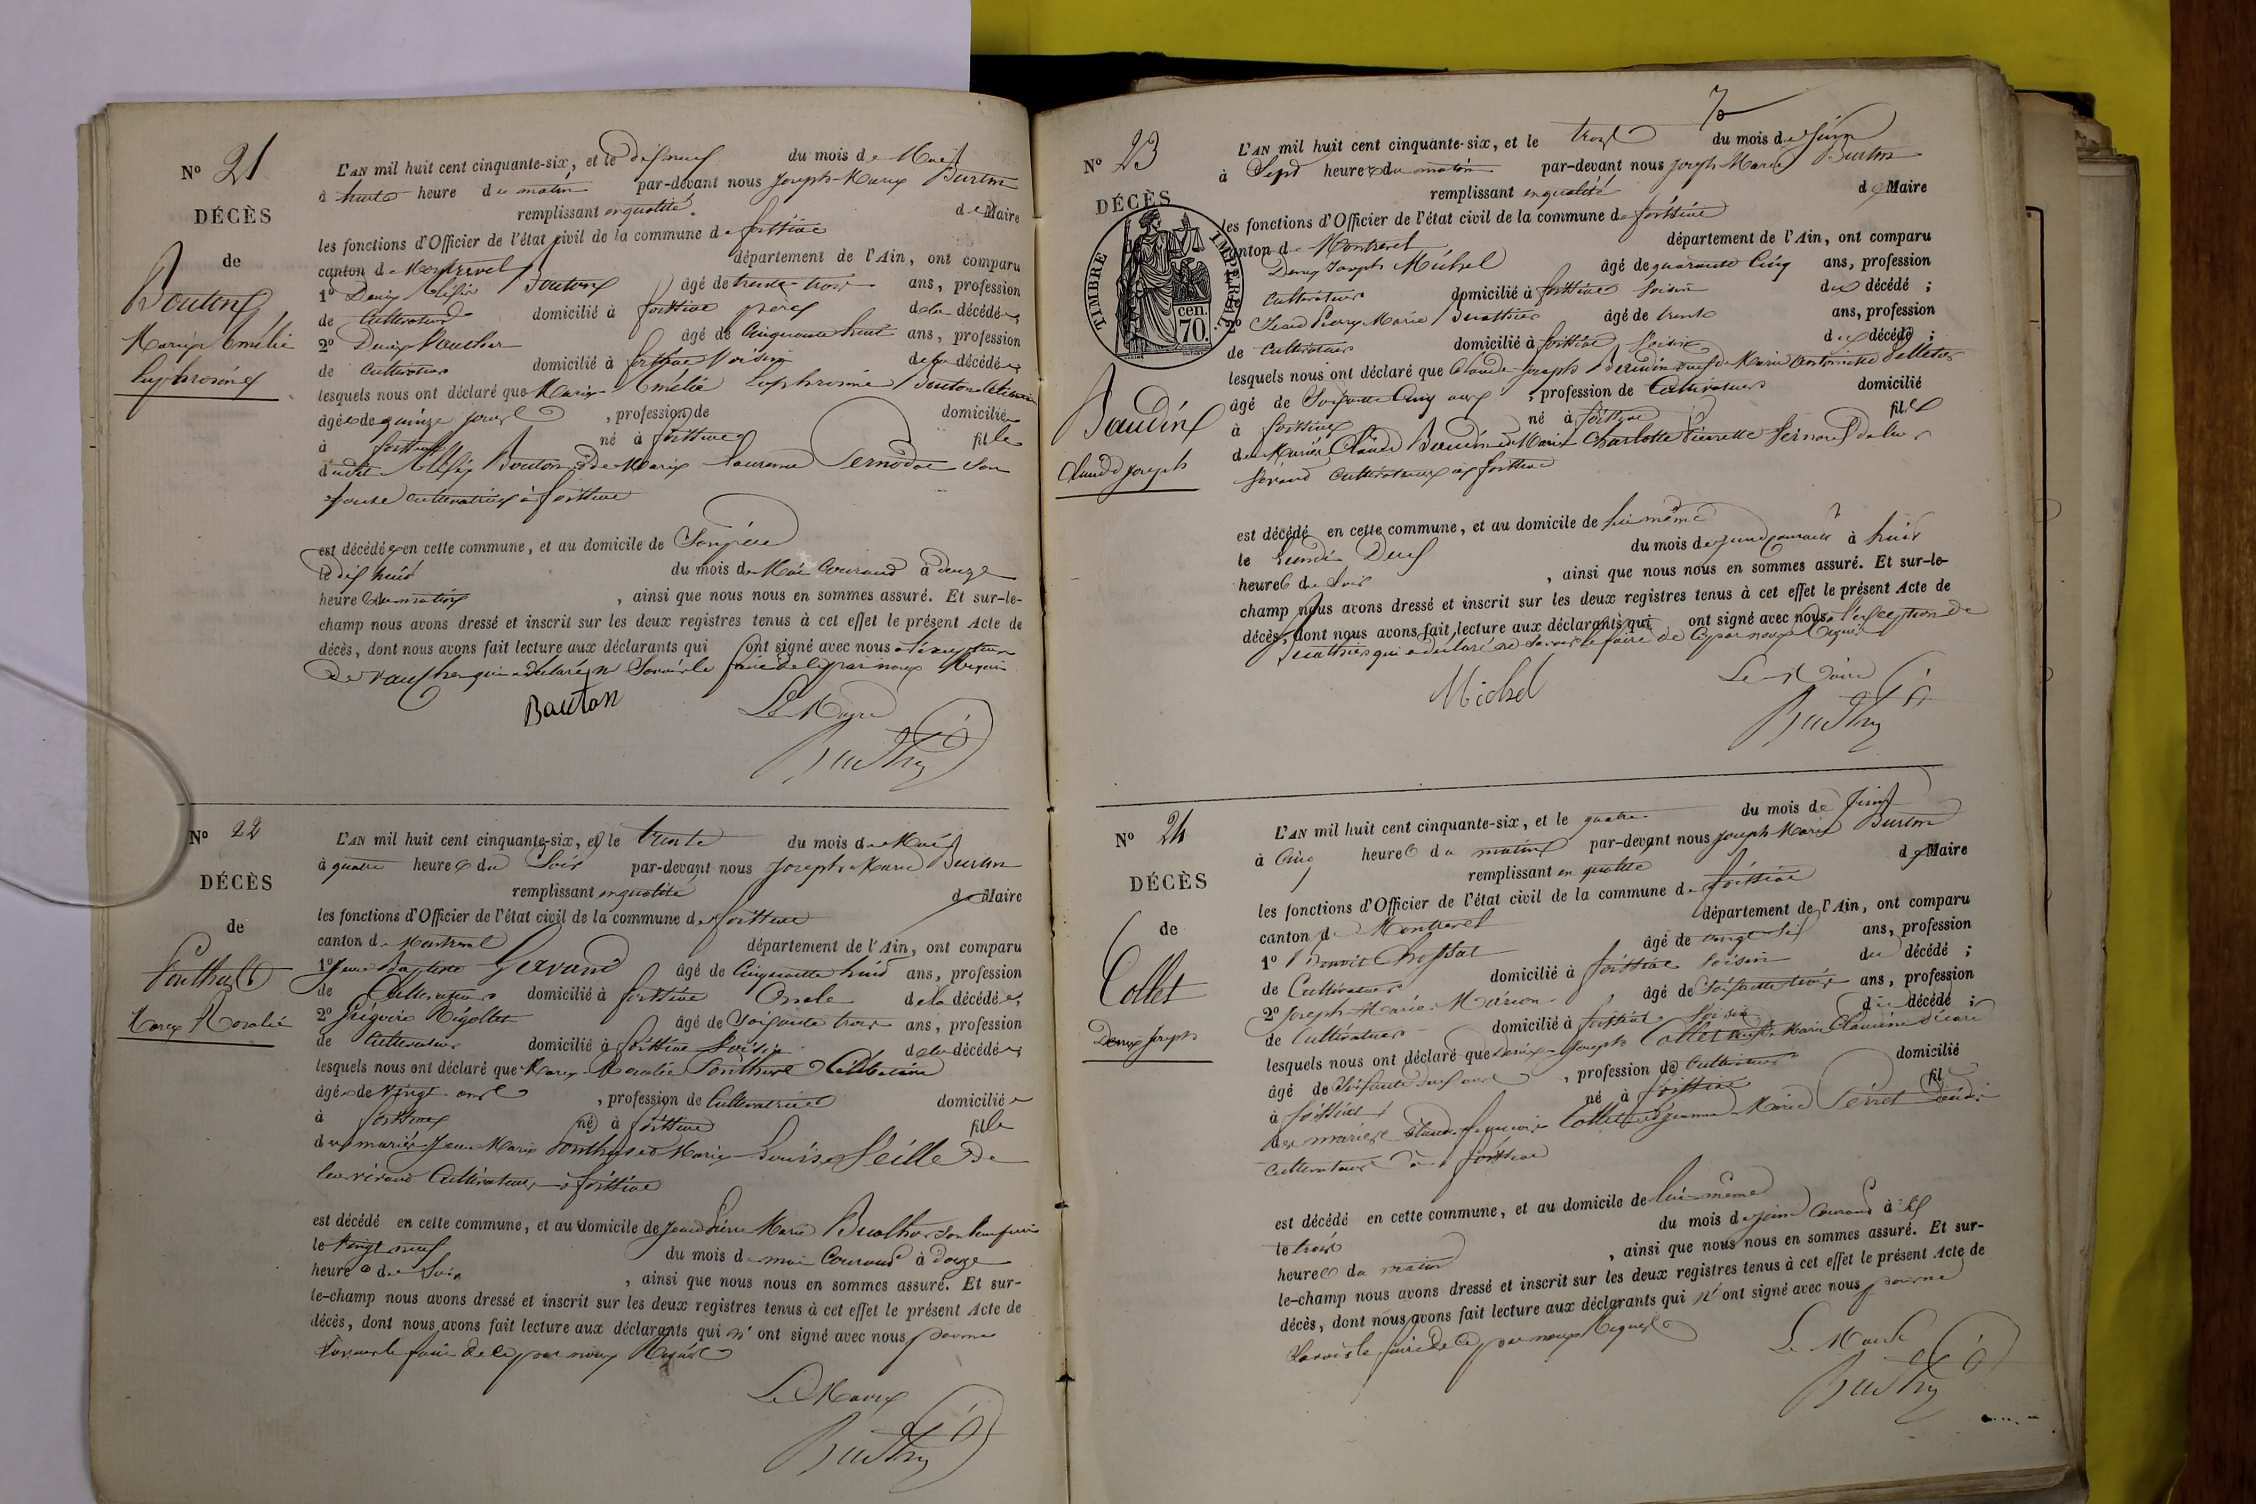 N° 21
DÉCÈS
de
Bouton
Marie Amélie
Euphrosine
L'AN mil huit cent cinquante-six, et le dix neuf du mois de Mai
à huit heure du matin par-devant nous Joseph Marie Burtin
remplissant en qualité de Maire
les fonctions d'Officier de l'état civil de la commune de foissiat
canton de Montrevel département de l'Ain, ont comparu
1° Denis Bouton âgé de trente trois ans, profession
de Cultivateur domicilié à foissiat père de la décédée
2° Denis Vaucher âgé de Cinquante huit ans, profession
de Cultivateur domicilié à foissiat Voisin de la décédée
lesquels nous ont déclaré que Marie Amélie Euphrosine Bouton
âgée de quinze jours , profession de domiciliée
à foissiat né à foissiat fille
dudit Bouton et de Marie Laurence son
épouse cultivatrice à foissiat
est décédée en cette commune, et au domicile de son père
le dix huit du mois de Mai Courant à douze
heures du matin , ainsi que nous nous en sommes assuré. Et sur-le-
champ nous avons dressé et inscrit sur les deux registres tenus à cet effet le présent Acte de
décès, dont nous avons fait lecture aux déclarants qui ont signé avec nous à l'exception
de Vaucher qui a déclaré ne Savoir le faire de ce par nous Requis
Bouton Le Maire
N° 22
DÉCÈS
de
Ponthus
Marie Rosalie
L'AN mil huit cent cinquante-six, et le trente du mois de Mai
à quatre heures du Soir par-devant nous Joseph Marie Burtin
remplissant en qualité de Maire
les fonctions d'Officier de l'état civil de la commune de foissiat
canton de Montrevel département de l'Ain, ont comparu
1° Jean Baptiste Gervand âgé de Cinquante huit ans, profession
de Cultivateur domicilié à foissiat Oncle de la décédée
2° Grégoire Rigollet âgé de Soixante trois ans, profession
de Cultivateur domicilié à foissiat Voisin de la décédée
lesquels nous ont déclaré que Marie Rosalie Ponthus Célibataire
âgée de Vingt ans , profession de Cultivatrice domiciliée
à foissiat né à foissiat fille
des mariés Jean Marie Ponthus et Marie Louise Feille de
leur vivant Cultivateurs à foissiat
est décédé en cette commune, et au domicile de Jean Pierre Marie Buathier son beau frère
le Vingt neuf du mois de mai Courant à douze
heure du Soir , ainsi que nous nous en sommes assuré. Et sur-
le-champ nous avons dressé et inscrit sur les deux registres tenus à cet effet le présent Acte de
décès, dont nous avons fait lecture aux déclarants qui n'ont signé avec nous pour ne
Savoir le faire de ce par nous Requis
Le Maire
N° 23
DÉCÈS
TIMBRE IMPERIAL
70 cen.
Baudin
Claude Joseph
L'AN mil huit cent cinquante-six, et le trois du mois de Juin
à Sept heures du matin par-devant nous Joseph Marie Burtin
remplissant en qualité de Maire
les fonctions d'Officier de l'état civil de la commune de foissiat
canton de Montrevel département de l'Ain, ont comparu
Denis Joseph Michel âgé de quarante Cinq ans, profession
Cultivateur domicilié à foissiat Voisin du décédé ;
2° Jean Pierre Marie Buathier âgé de trente ans, profession
de Cultivateur domicilié à foissiat Voisin du décédé ;
lesquels nous ont déclaré que Claude Joseph Baudin veuf de Marie Antoinette
âgé de Soixante Cinq ans , profession de Cultivateur domicilié
à foissiat né à foissiat fils
des Mariés Claude Baudin et Marie Charlotte Pierrette de leur
vivant Cultivateurs à foissiat
est décédé en cette commune, et au domicile de lui même
le Lundi Deux du mois de Juin Courant à huit
heures du Soir , ainsi que nous nous en sommes assuré. Et sur-le-
champ nous avons dressé et inscrit sur les deux registres tenus à cet effet le présent Acte de
décès, dont nous avons fait lecture aux déclarants qui ont signé avec nous à l'exception de
Buathier qui a déclaré ne Savoir le faire de ce par nous Requis
Michel Le Maire
N° 24
DÉCÈS
de
Collet
Denis Joseph
L'AN mil huit cent cinquante-six, et le quatre du mois de Juin
à Cinq heures du matin par-devant nous Joseph Marie Burtin
remplissant en qualité de Maire
les fonctions d'Officier de l'état civil de la commune de foissiat
canton de Montrevel département de l'Ain, ont comparu
1° Benoit Chossat âgé de vingt six ans, profession
de Cultivateur domicilié à foissiat Voisin du décédé ;
2° Joseph Marie Marion âgé de Soixante trois ans, profession
de Cultivateur domicilié à foissiat Voisin du décédé ;
lesquels nous ont déclaré que Denis Joseph Collet Marie Claudine
âgé de Soixante ans , profession de Cultivateur domicilié
à foissiat né à foissiat fils
des mariés Claude François Collet et Jeanne Marie Perret
Cultivateurs à foissiat
est décédé en cette commune, et au domicile de lui même
le trois du mois de Juin Courant à six
heures du matin , ainsi que nous nous en sommes assuré. Et sur-
le-champ nous avons dressé et inscrit sur les deux registres tenus à cet effet le présent Acte de
décès, dont nous avons fait lecture aux déclarants qui n'ont signé avec nous pour ne
Savoir le faire de ce par nous Requis
Le Maire